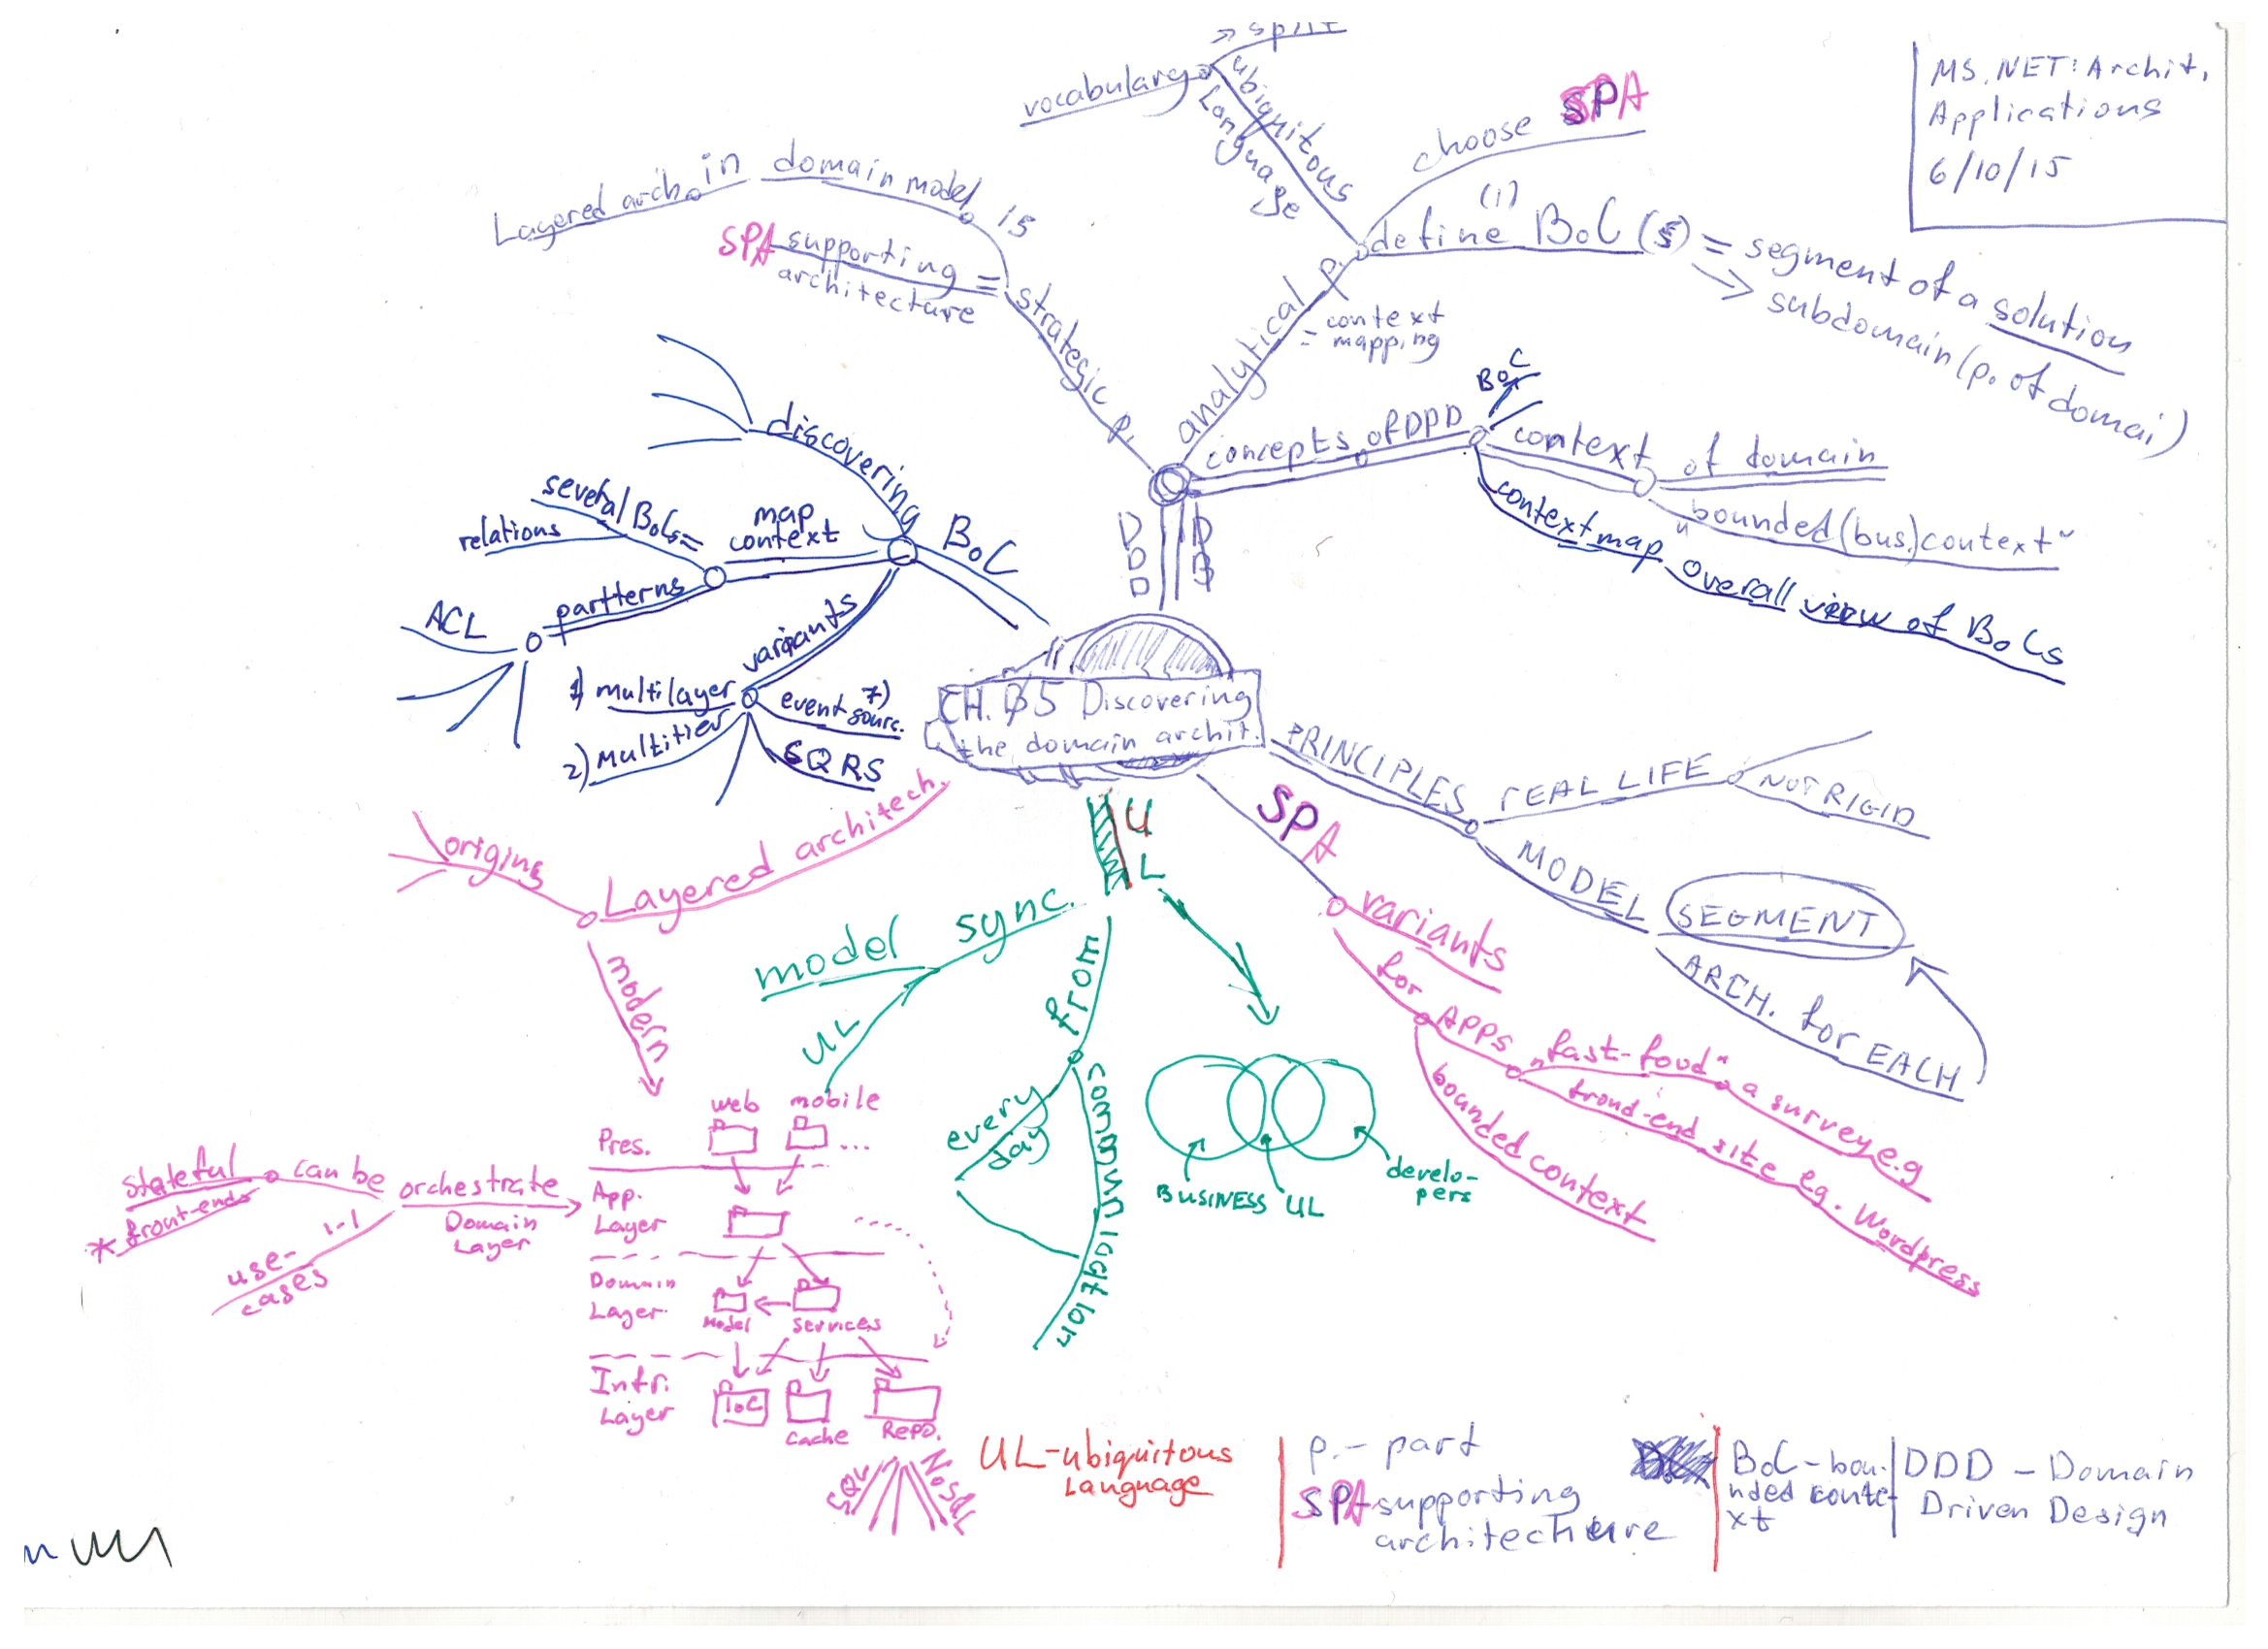 MS .NET: Archit.
Applications
6/10/15
split
vocabulary
ubiquitous
Language
choose SPA
(1)
define BoC (s) = segment of a solution
subdomain (p. of domai)
analytical p.
= context
mapping
Layered arch. in domain model is
SPA supporting =
architecture
strategic p.
concepts of DPD
BoC
context of domain
"bounded (bus.) context"
context map overall view of BoCs
DDD
BoC
discovering
map
context
several BoCs =
relations
partterns
ACL
variants
1) multilayer
2) multitier
event sourc. 7)
CQRS
CH. 05 Discovering
the domain archit.
PRINCIPLES
REAL LIFE
NOT RIGID
MODEL SEGMENT
ARCH. for EACH
SPA
variants
for APPS
"fast-food" a survey e.g
front-end site eg. Wordpress
bounded context
UL
model sync.
UL
from
communication
every
day
BUSINESS
UL
develo-
pers
Layered architech.
origins
modern
web mobile
Pres. ...
App.
Layer
Domain
Layer
Model services
Infr.
Layer
IoC
cache Repo.
SQL NoSQL
stateful can be
* front-ends
orchestrate
Domain
Layer
1-1
use-
cases
UL-ubiquitous
Language
p. - part
SPA-supporting
architecture
BoC - bou-
nded conte-
xt
DDD - Domain
Driven Design